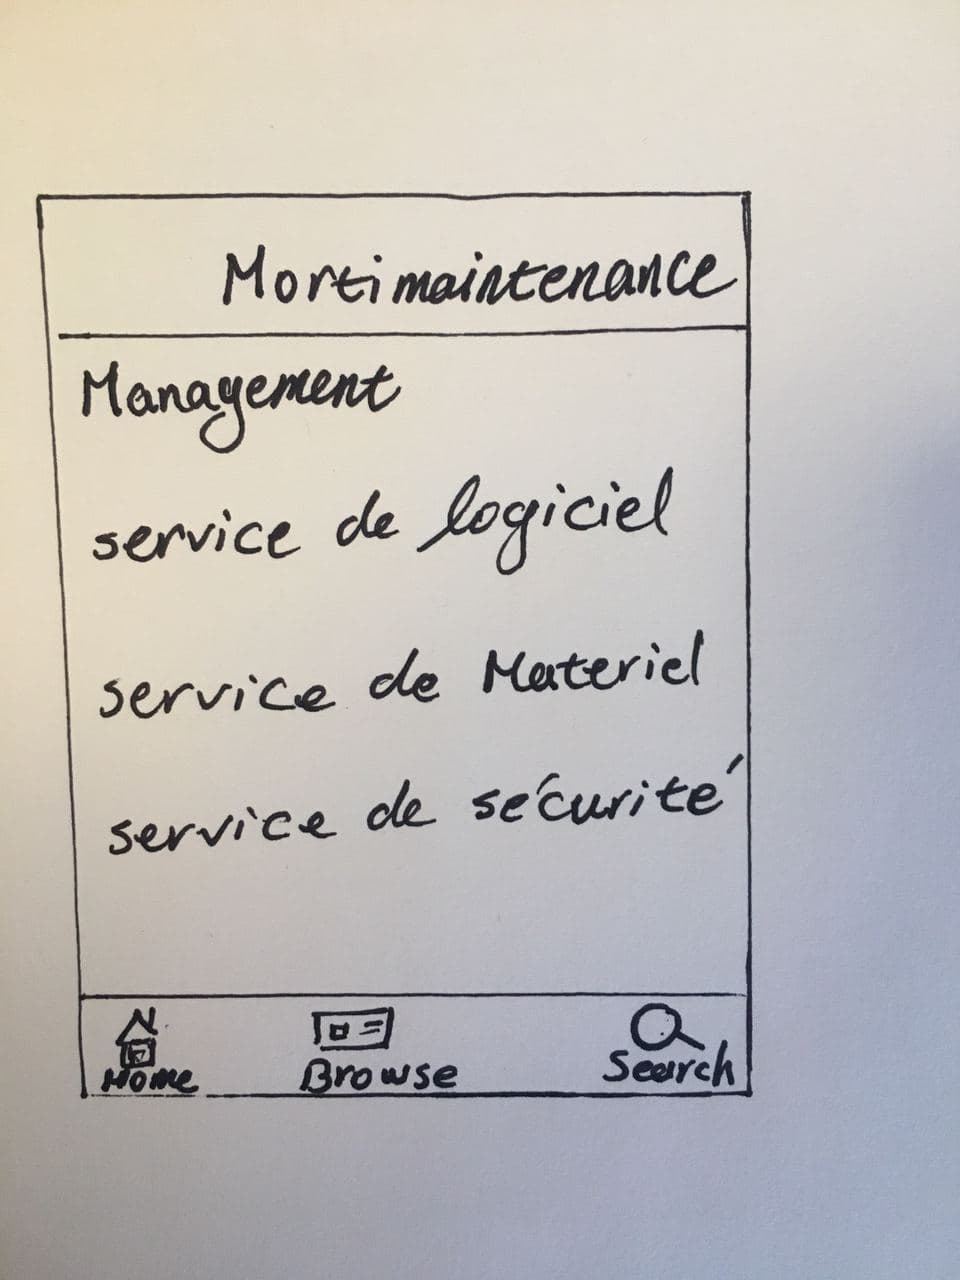 Mortimaintenance
Management
service de logiciel
service de Materiel
service de sécurité
Home
Browse
Search